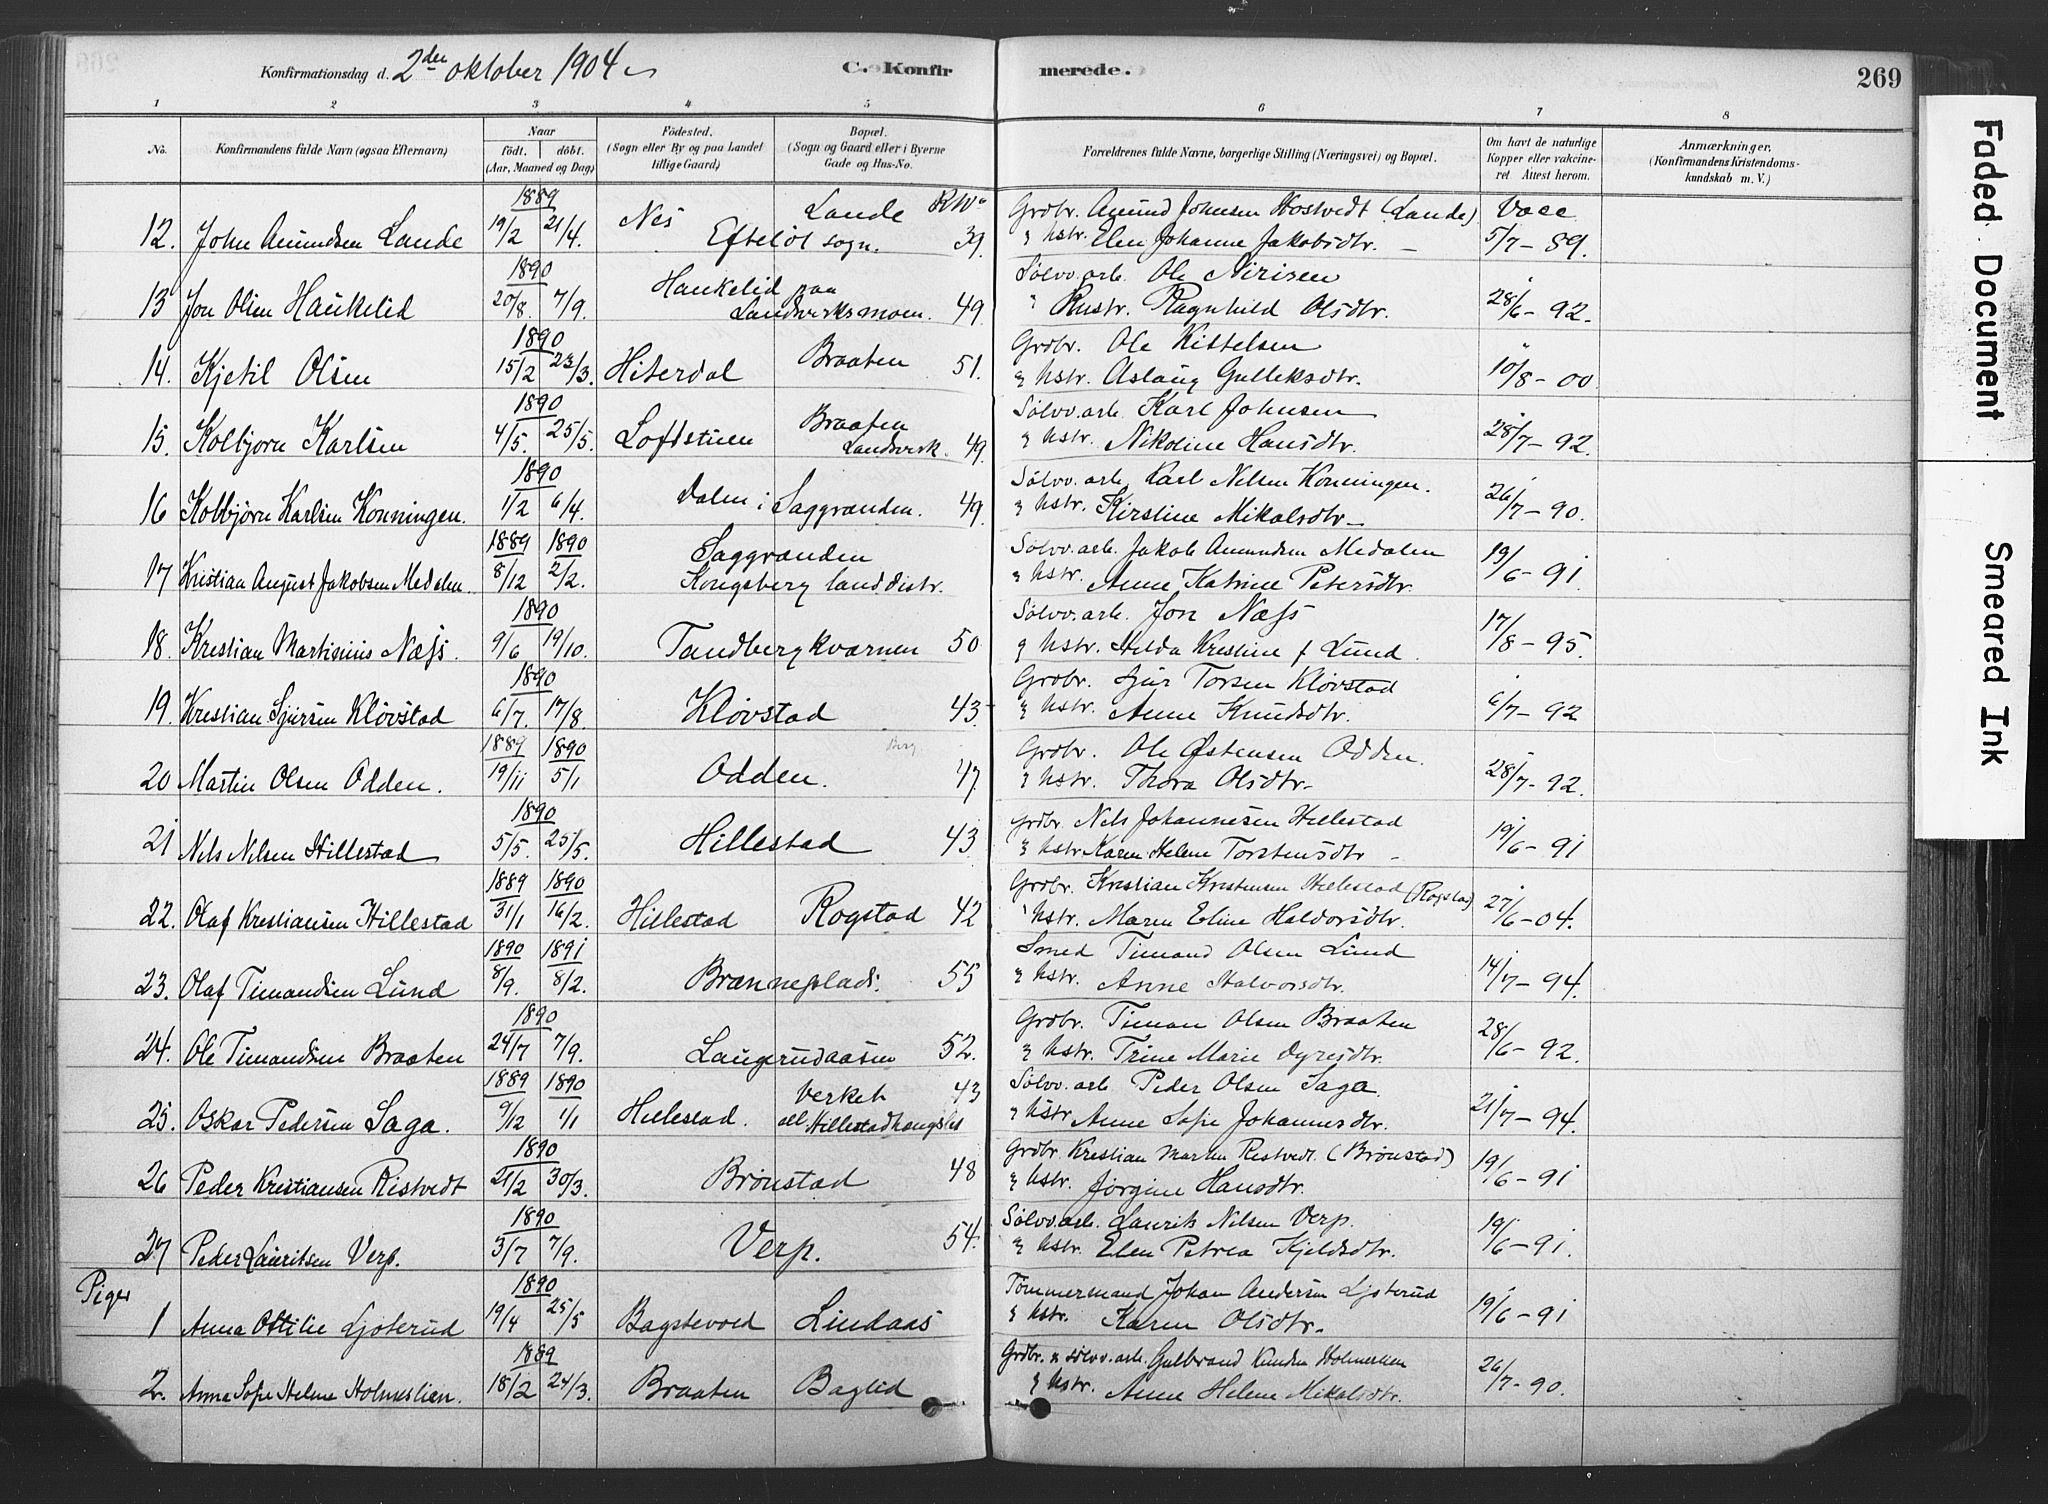 Konfirmationsdag d. 2den oktober 1904
C. Konfirmerede.
269
1 2 3 4 5 6 7 8
No.
Konfirmandens fulde Navn (ogsaa Efternavn)
Naar
födt. döbt.
(Aar, Maaned og Dag)
Födested.
(Sogn eller By og paa Landet tillige Gaard)
Bopæl.
(Sogn og Gaard eller i Byerne Gade og Hus-No.
Forældrenes fulde Navne, borgerlige Stilling (Næringsvei) og Bopæl.
Om havt de naturlige Kopper eller vakcineret Attest herom.
Anmærkninger.
(Konfirmandens Kristendomskundskab m. V.)
1889
12. John Amundsen Lande 19/2 21/4. Nes Lande 39.
Efteløt sogn.
Grdbr. Amund Johnsen Hostvedt (Lande) Vacc.
hstr. Elen Johanne Jakobsdtr. 5/7-89.
1890
13 Jon Olsen Haukelid 20/8. 7/9. Haukelid paa Landsverksmoen. 49.
Sølvv.arb. Ole Nirisen
Hustr. Ragnhild Olsdtr. 28/6-92.
1890
14. Kjetil Olsen 15/2 23/3. Hiterdal Braaten 51.
Grdbr. Ole Kittelsen
hstr. Aslaug Gulleksdtr. 10/8-00
1890
15. Kolbjørn Karlsen 4/5. 25/5. Loftstuen Braaten Landsverk. 49.
Sølvv.arb. Karl Johnsen
hstr. Nikoline Hansdtr. 28/7-92.
1890
16 Kolbjørn Karlsen Konningen. 1/2 6/4. Dalen i Saggrenden. 49.
Sølvv.arb. Karl Nilsen Konningen.
hstr. Kirstine Mikalsdtr. 26/7-90.
1889 1890
17 Kristian August Jakobsen Medalen. 8/12 2/2. Saggrenden
Kongsberg landdistr.
Sølvv.arb. Jakob Amundsen Medalen
hstr. Anne Katrine Petersdtr. 19/6-91
1890
18. Kristian Martinius Næss. 9/6 19/10. Tandbergkvarnen 50
Sølvv.arb. Jon Næss
hstr. Hilda Kristine f Lund. 17/8-95.
1890
19. Krestian Sjursen Kløvstad 6/7. 17/8. Kløvstad 43.
Grdbr. Sjur Torsen Kløvstad
hstr. Anne Knudsdtr. 6/7-92
1889 1890
20 Martin Olsen Odden. 19/11 5/1 Odden. Berg. 47.
Grdbr. Ole Østensen Odden.
hstr. Thora Olsdtr. 28/7-92.
1890
21 Nils Nilsen Hillestad 5/5. 25/5. Hillestad 43.
Grdbr. Nils Johannesen Hillestad
hstr Karen Helene Torstensdtr 19/6-91
1889 1890
22. Olaf Kristiansen Hillestad 31/1 16/2. Hillestad Rogstad 42
Grdbr. Kristian Kristensen Hillestad (Rogstad)
hstr. Maren Eline Haldorsdtr. 27/6-04.
1890 1891
23. Olaf Timandsen Lund 8/9. 8/2. Brænneplads. 55
Smed Timand Olsen Lund
hstr. Anne Halvorsdtr. 14/7-94.
1890
24. Ole Timandsen Braaten 24/7 7/9. Laugerudaasen 52.
Grdbr. Timan Olsen Braaten
hstr. Trine Marie Dyresdtr. 28/6-92.
1889 1890
25. Oskar Pedersen Saga. 9/12 1/1 Hillestad. Verket 43
Sølvv.arb Peder Olsen Saga.
hstr. Anne Sofie Johannesdtr. 21/7-94.
1890
26 Peder Kristiansen Ristvedt 21/2 30/3. Brønstad 48
Grdbr. Kristian Martin Ristvedt. (Brønstad)
hstr. Jørgine Hansdtr. 19/6-91
1890
27 Peder Lauritsen Verp. 3/7 7/9. Verp. 54.
Sølvv.arb. Laurits Nilsen Verp.
hstr. Elen Petrea Kjeldsdtr. 19/6-91.
Piger
1890
1 Anna Ottilie Ljoterud 19/4 25/5 Bagstevold Lindaas
Tømmermand Johan Andersen Ljoterud
hstr. Karen Olsdtr. 19/6-91
1889
2. Anna Sofie Helene Holmeslien. 18/2 24/3. Braaten Baglid
Grdbr. & sølvv.arb. Gulbrand Knudsen
hstr. Anne Helene Mikalsdtr. 26/7-90.
Faded Document
Smeared Ink